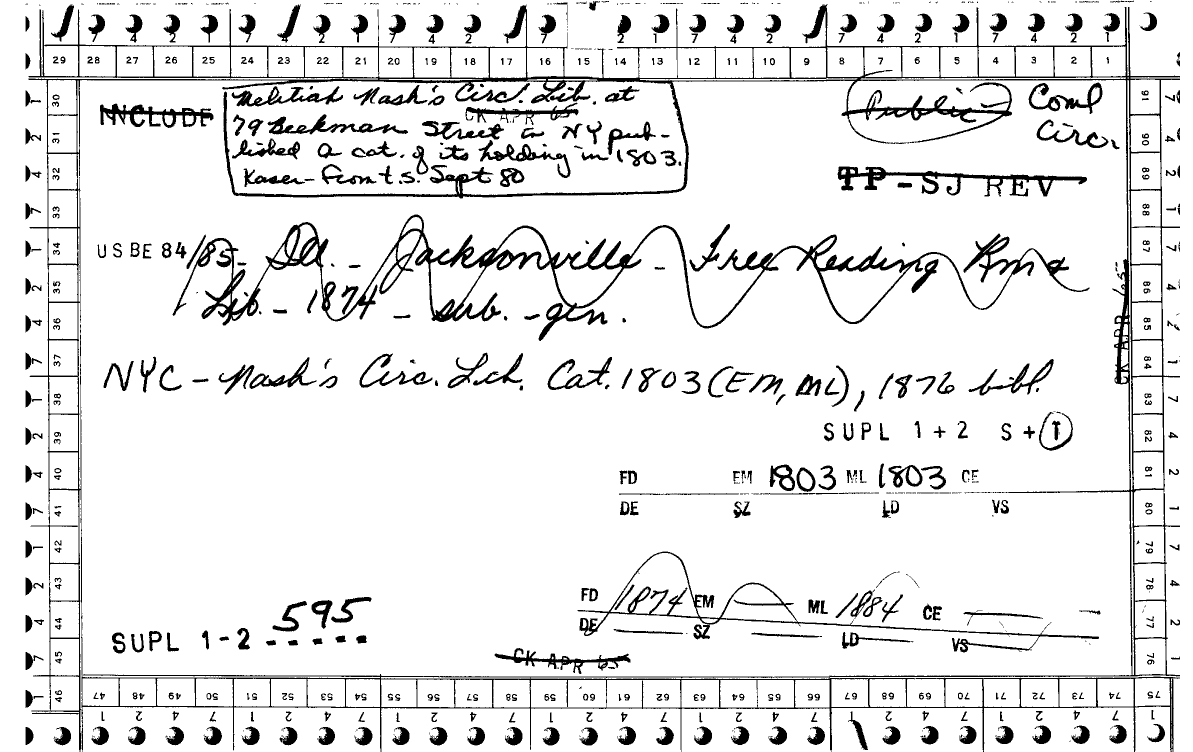 7 4 2 1 7 4 2 1 7 4 2 1 7 2 1 7 4 2 1 7 4 2 1 7 4 2 1
29 28 27 26 25 24 23 22 21 20 19 18 17 16 15 14 13 12 11 10 9 8 7 6 5 4 3 2 1
INCLUDE
Melitiah Nash's Circ. Lib. at
CK APR 65
79 Beekman Street in NY pub-
lished a cat. of its holding in 1803.
Kaser - From t.s. Sept 80
Public Coml
Circ.
TP - SJ REV
USBE 84/85 - Ill. - Jacksonville - Free Reading Rm &
Lib. - 1874 - sub. - gen.
NYC - Nash's Circ. Lib. Cat. 1803 (EM, ML), 1876 bibl.
SUPL 1 + 2 S + 1
FD EM 1803 ML 1803 CE
DE SZ LD VS
FD 1874 EM — ML 1884 CE —
DE SZ LD VS
SUPL 1-2 595
CK APR 65
30 31 32 33 34 35 36 37 38 39 40 41 42 43 44 45 46
47 48 49 50 51 52 53 54 55 56 57 58 59 60 61 62 63 64 65 66 67 68 69 70 71 72 73 74 75
91 90 89 88 87 86 85 84 83 82 81 80 79 78 77 76
CK APR 65